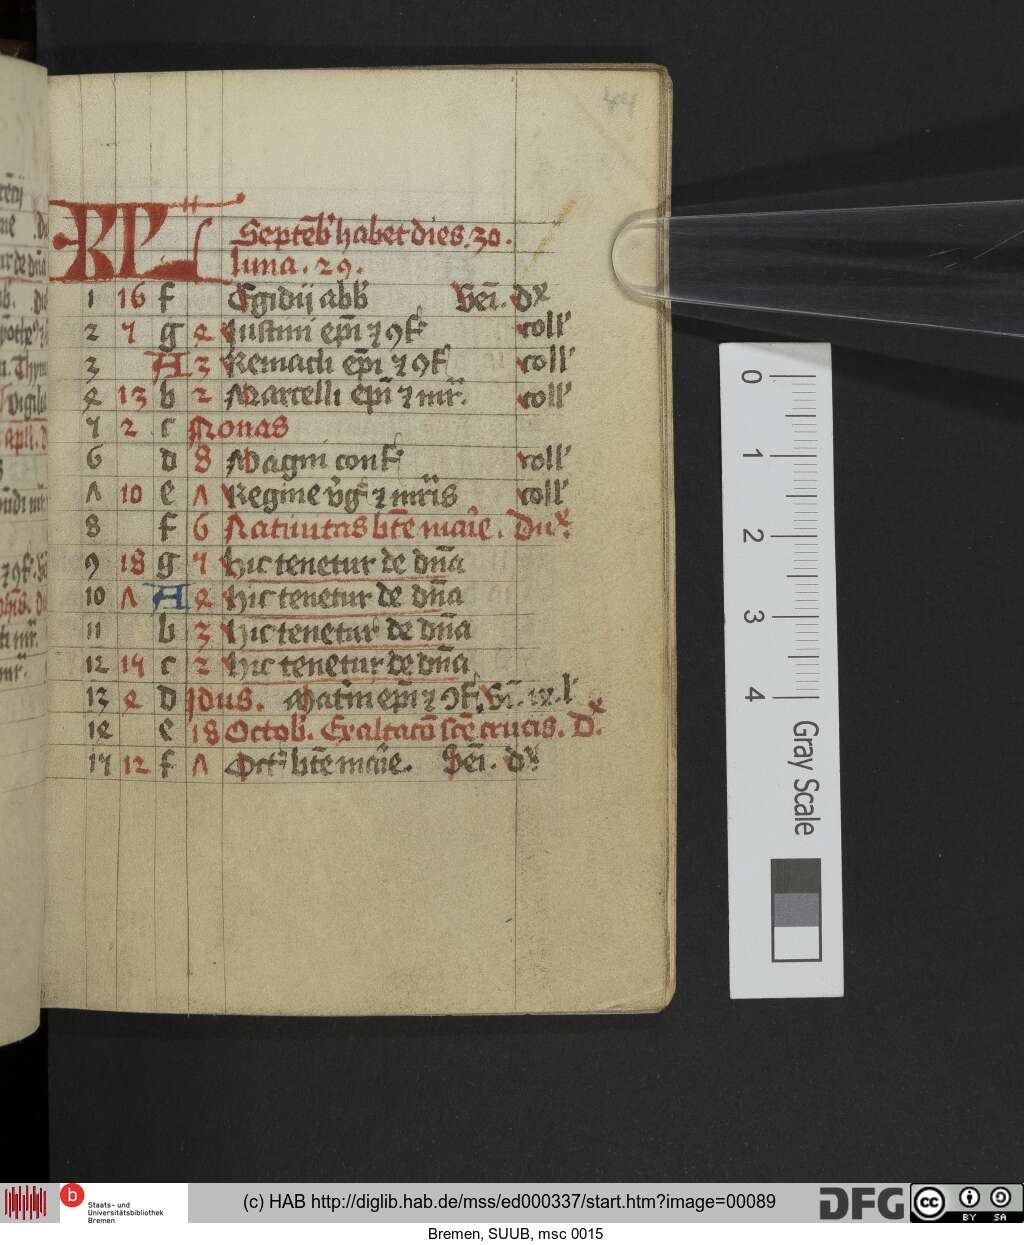 44
KL Septẽb' habet dies .30.
luna . 29.
1 16 f Egidij abb' Sei. dx
2 7 g 4 Justini epī ⁊ 9f coll'
3 A 3 Remacli epī ⁊ 9f coll'
4 13 b 2 Marcelli epī ⁊ mr̄. coll'
5 2 c Nonas
6 d 8 Magni conf coll'
7 10 e 7 Regine v̄g ⁊ mr̄is coll'
8 f 6 Natiuitas bt̄e marie . Du
9 18 g 5 Hic tenetur de dn̄a
10 7 A 4 Hic tenetur de dn̄a
11 b 3 Hic tenetur de dn̄a
12 15 c 2 Hic tenetur de dn̄a
13 4 d Idus . Mat'ni epī ⁊ 9f. ix. l'
14 e 18 Octob'. Exaltacō sc̄e crucis . D.
15 12 f 7 Oct' bt̄e marie. Sei. dx
0
1
2
3
4
Gray Scale
b Staats- und
Universitätsbibliothek
Bremen
(c) HAB http://diglib.hab.de/mss/ed000337/start.htm?image=00089
DFG
cc BY SA
Bremen, SUUB, msc 0015